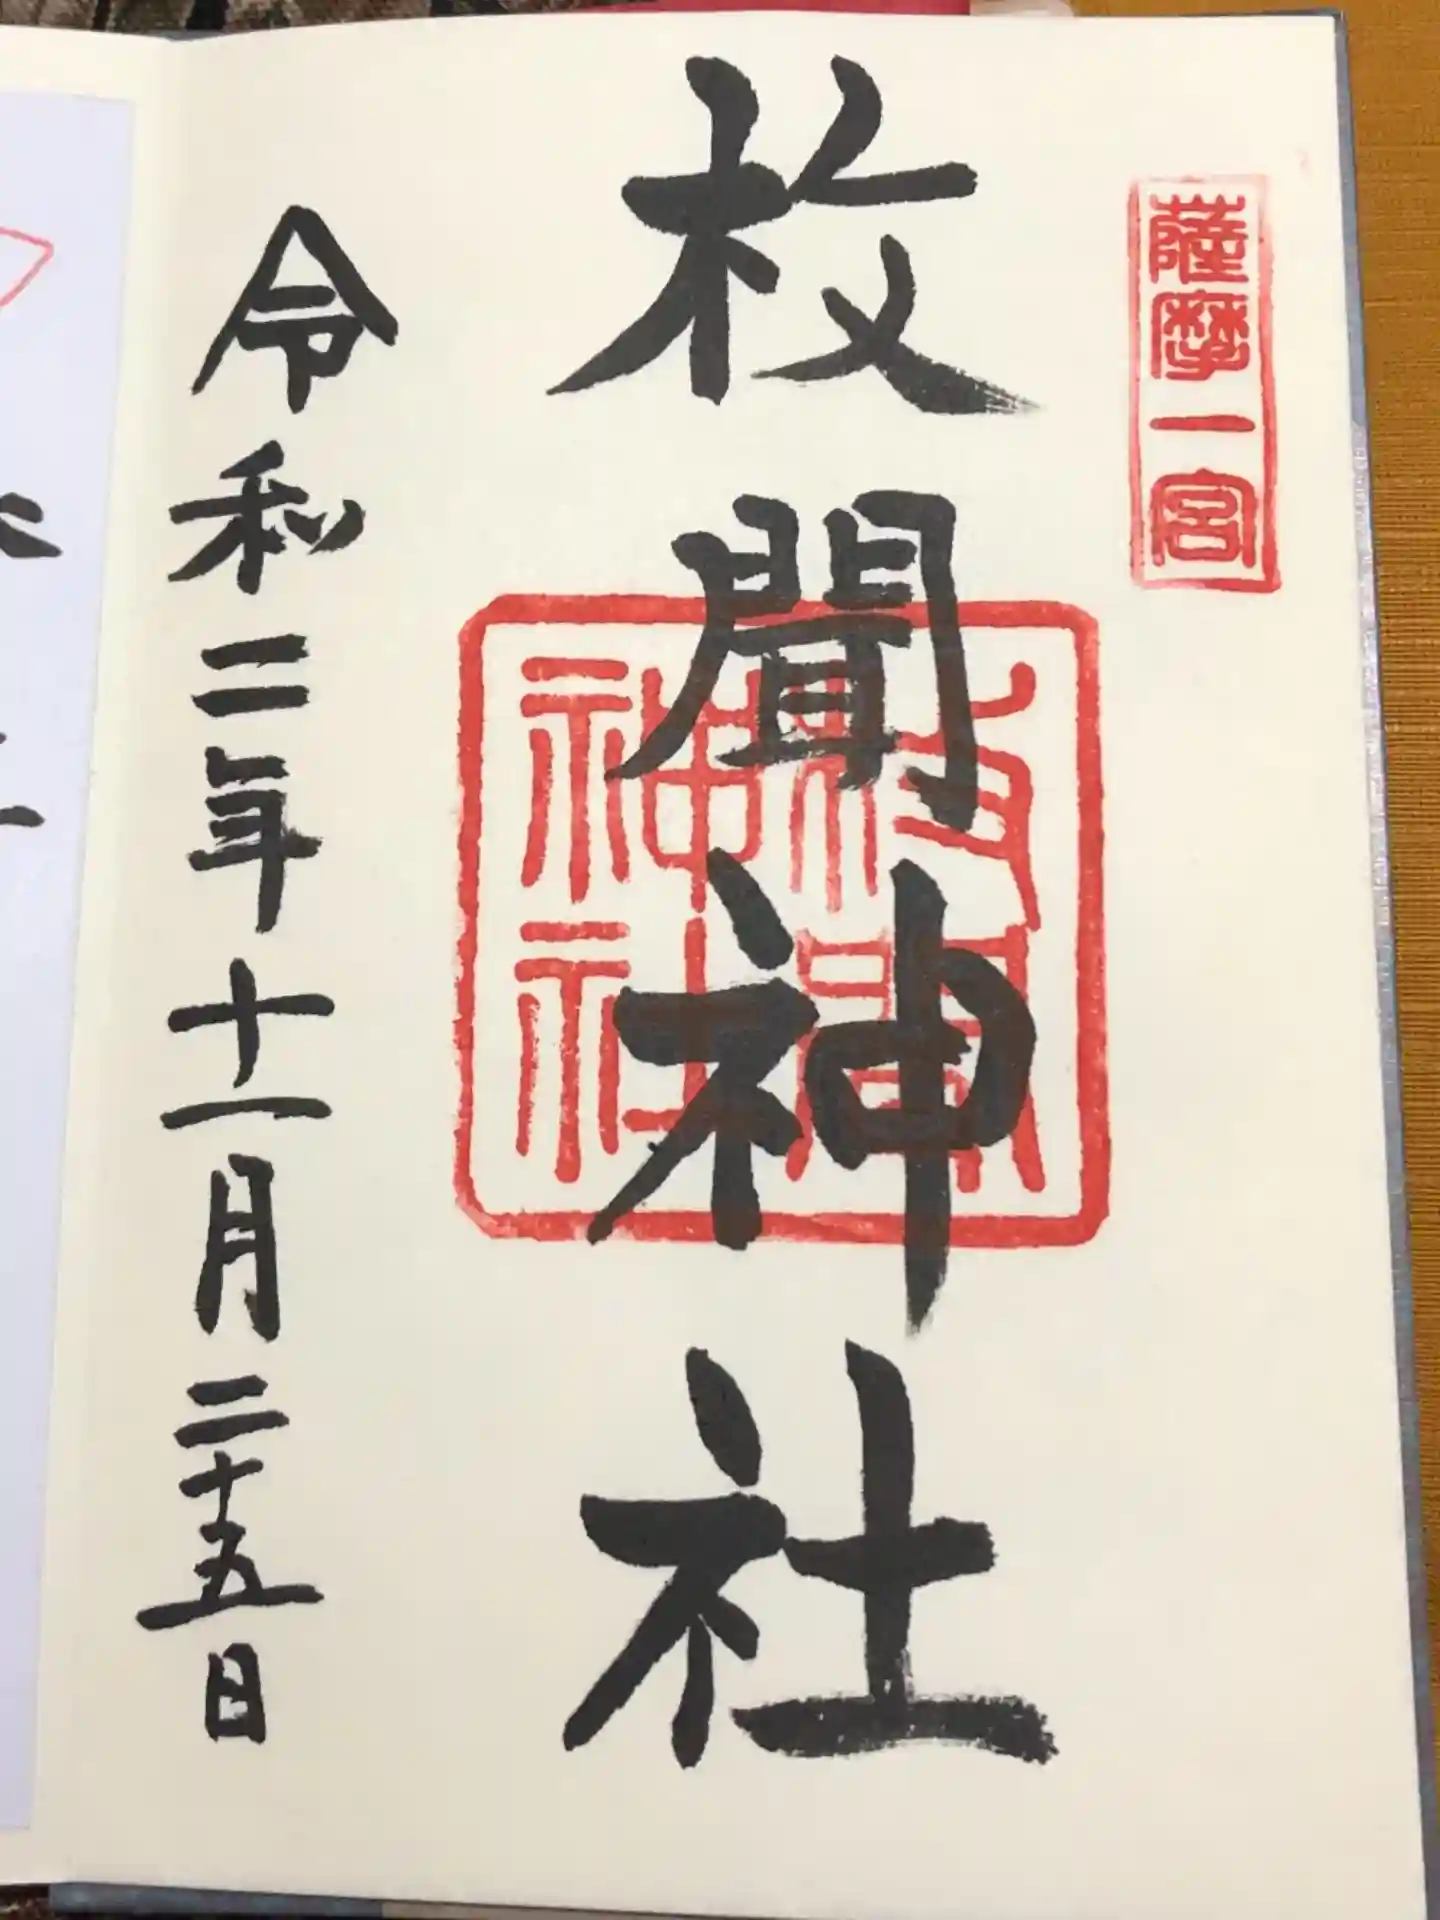 薩摩一宮
枚聞神社
枚聞
神社
令和二年十一月二十五日